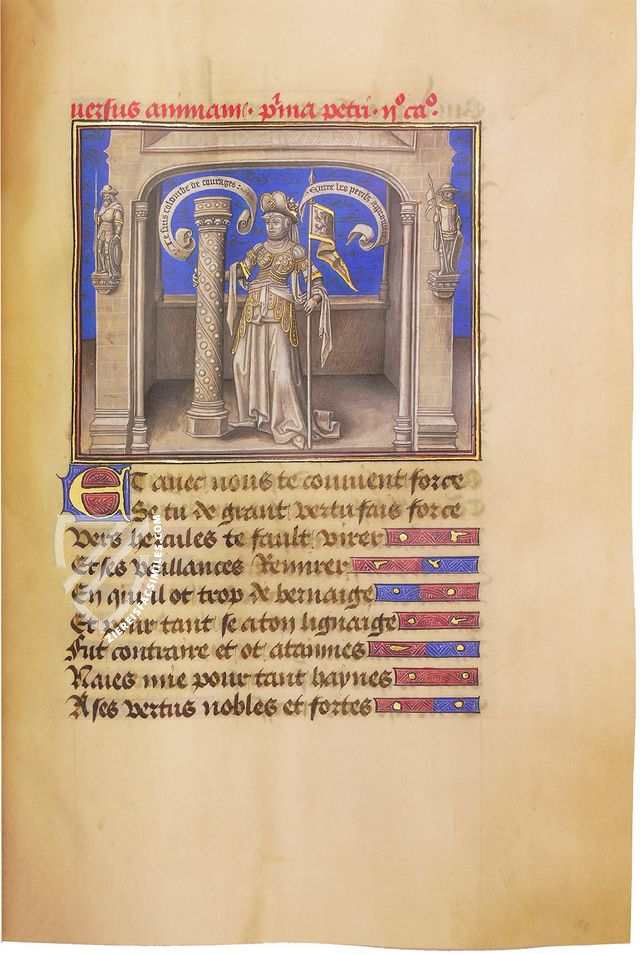 versus animam. p'ma petri. ij° ca°.
Je suis colombe de courages
Entre les perilz
Et avec nous te convient force
Se tu de grant vertu fais force
Vers hercules te fault virer
Et ses vaillances Remirer
En qui il ot trop de bernaige
Et pour tant se a ton lignaige
Fut contraire et ot atayines
Naies mie pour tant haynes
A ses vertus nobles et fortes
ZIEREISFACSIMILES.COM